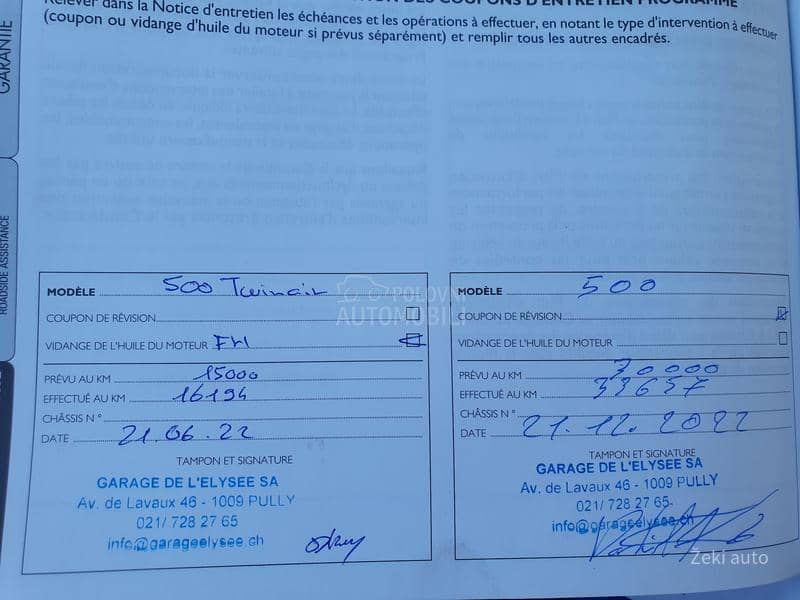 DES COUPONS D'ENTRETIEN PROGRAMMÉ
Relever dans la Notice d'entretien les échéances et les opérations à effectuer, en notant le type d'intervention à effectuer
(coupon ou vidange d'huile du moteur si prévus séparément) et remplir tous les autres encadrés.
GARANTIE
ROADSIDE ASSISTANCE
MODÈLE 500 Twinair
COUPON DE RÉVISION
VIDANGE DE L'HUILE DU MOTEUR
PRÉVU AU KM 15000
EFFECTUÉ AU KM 16194
CHÂSSIS N°
DATE 21.06.22
TAMPON ET SIGNATURE
GARAGE DE L'ELYSEE SA
Av. de Lavaux 46 - 1009 PULLY
021/ 728 27 65
info@garageelysee.ch
MODÈLE 500
COUPON DE RÉVISION
VIDANGE DE L'HUILE DU MOTEUR
PRÉVU AU KM 30000
EFFECTUÉ AU KM 33657
CHÂSSIS N°
DATE 21.12.2022
TAMPON ET SIGNATURE
GARAGE DE L'ELYSEE SA
Av. de Lavaux 46 - 1009 PULLY
021/ 728 27 65
info@garageelysee.ch
POLOVNI
AUTOMOBILI
Žeki auto